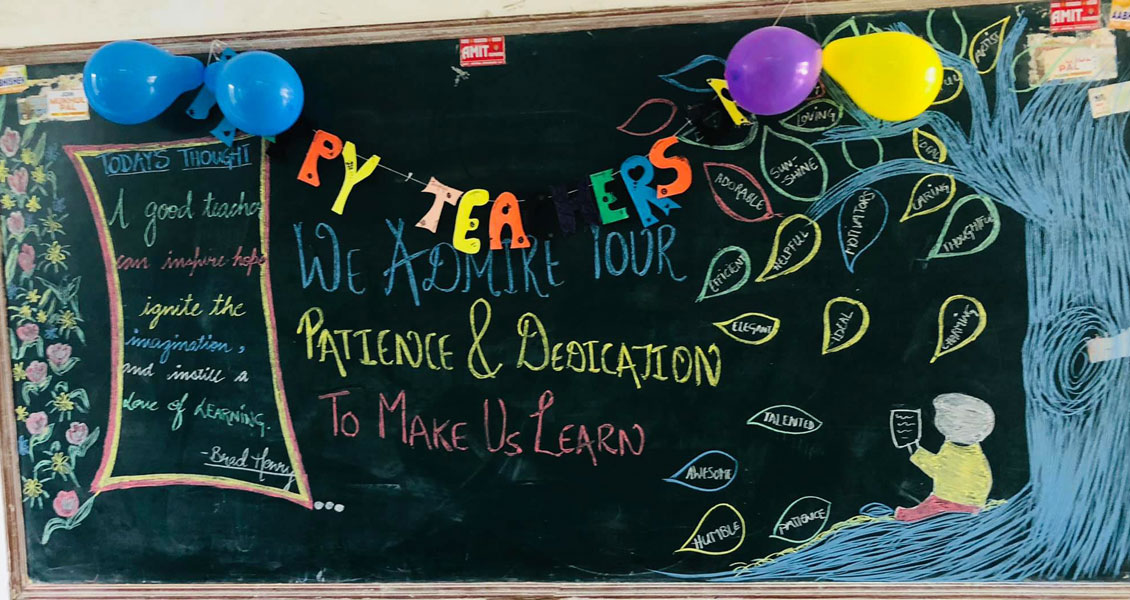 AMIT
AMIT
PAL
TODAYS THOUGHT
A good teacher
can inspire hope
ignite the
imagination,
and instill a
Love of LEARNING.
-Brad Henry
PY TEACHERS
WE ADMIRE YOUR
PATIENCE & DEDICATION
TO MAKE US LEARN
ARTIST
LOVING
SUN-
SHINE
ADORABLE
DEAL
CARING
MOTIVATORS
THOUGHTFUL
HELPFUL
EFFICIENT
ELEGANT
IDEAL
CHARMING
TALENTED
AWESOME
HUMBLE
PATIENCE